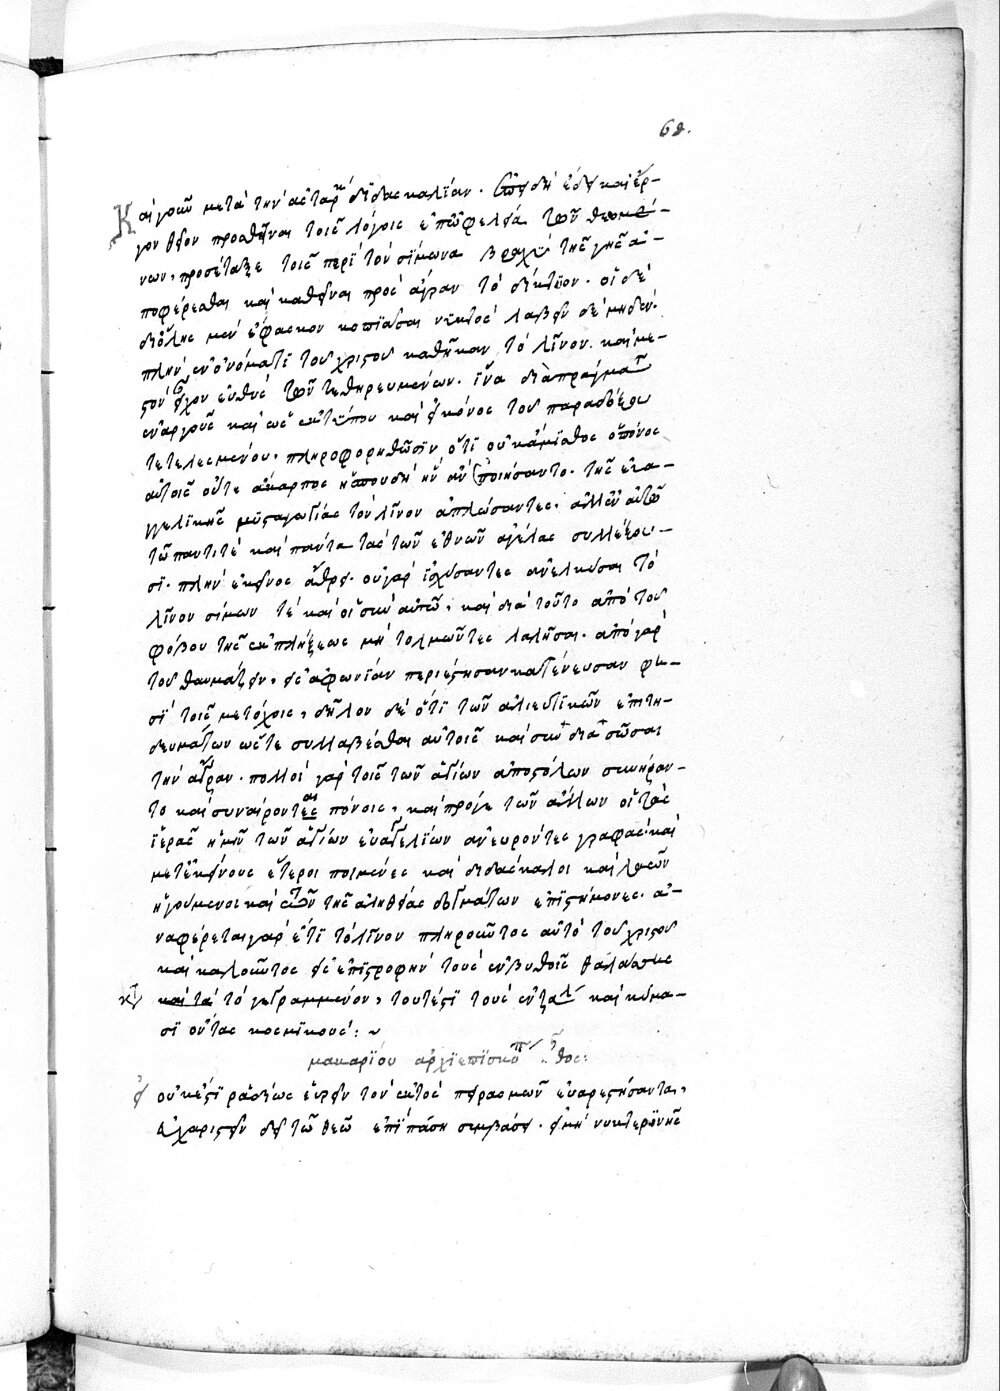 68.
Καὶ γοῦν μετὰ τὴν ἀστὰρκ διδασκαλίαν. ἔδει καὶ ἔρ-
γον θεῖον προσθεῖναι τοῖς λόγοις ἐπωφελῆ τῶν θεωμέ-
νων, προσέταξε τοῖς περὶ τὸν σίμωνα βραχὺ τῆς γῆς ἀ-
ποφέρεσθαι καὶ καθεῖναι πρὸς ἄγραν τὸ δίκτυον. οἱ δὲ
διόλης μὲν ἔφασκον κοπιᾶσαι νυκτὸς λαβεῖν δὲ μηδέν.
πλὴν ἐν ὀνόματι τοῦ χριστοῦ καθῆκαν τὸ λίνον. καὶ με-
στὸν εἶχον εὐθὺς τῶν τεθηρευμένων. ἵνα διὰ πράγματος
ἐναργοῦς καὶ ὡς ἐν τύπου καὶ εἰκόνος τοῦ παραδόξως
τετελεσμένου, πληροφορηθῶσιν ὅτι οὐκ ἄμισθος ὁ πόνος
αὐτοῖς οὔτε ἄκαρπος ἡ σπουδὴ ἣν ἂν ποιήσαιντο. τῆς εὐα-
γγελικῆς μυσταγωγίας τὸ λίνον ἁπλώσαντες. ἀλλ' ἐν αὐτῷ
τῷ παντί τε καὶ πάντα τὰς τῶν ἐθνῶν ἀγέλας συλλέξου-
σι. πλὴν ἐκεῖνος ἄθρει. οὐ γὰρ ἰσχύσαντες ἀνελκύσαι τὸ
λῖνον σίμων τέ καὶ οἱ σὺν αὐτῷ, καὶ διὰ τοῦτο ἀπὸ τοῦ
φόβου τῆς ἐκπλήξεως μὴ τολμῶντες λαλῆσαι. ἀπὸ γὰρ
τοῦ θαυμάζειν, εἰς ἀφωνίαν περιέστησαν κατένευσαν φη-
σὶ τοῖς μετόχοις, δῆλον δὲ ὅτι τῶν ἁλιευτικῶν ἐπιτη-
δευμάτων ὥστε συλλαβέσθαι αὐτοῖς καὶ συνδιασῶσαι
τὴν ἄγραν. πολλοὶ γὰρ τοῖς τῶν ἁγίων ἀποστόλων συνήραν-
το καὶ συναίρονται πόνοις, καὶ πρό γε τῶν ἄλλων οἱ τὰς
ἱερὰς ἡμῖν τῶν ἁγίων εὐαγγελίων ἀνευρόντες γραφὰς καὶ
μετ' ἐκείνους ἕτεροι ποιμένες καὶ διδάσκαλοι καὶ λαῶν
ἡγούμενοι καὶ τῶν τῆς ἀληθείας δογμάτων ἐπιστήμονες. ἀ-
ναφέρεται γὰρ ἔτι τὸ λῖνον πληροῦντος αὐτὸ τοῦ χριστοῦ
καὶ καλοῦντος εἰς ἐπιστροφὴν τοὺς ἐν βυθοῖς θαλάσσης
καὶ τὰ τὸ γεγραμμένον, τουτέστι τοὺς ἐν ζάλ καὶ κύμα-
σι ὄντας κοσμικούς:
μακαρίου ἀρχιεπισκόπ
οὐκ ἔστι ῥᾳδίως εὑρεῖν τὸν ἐκτὸς πειρασμῶν εὐαρεστήσαντα,
εὐχαριστεῖν δεῖ τῷ θεῷ ἐπὶ πάσῃ συμβάσει. εἰ μὴ νυκτερινῆς